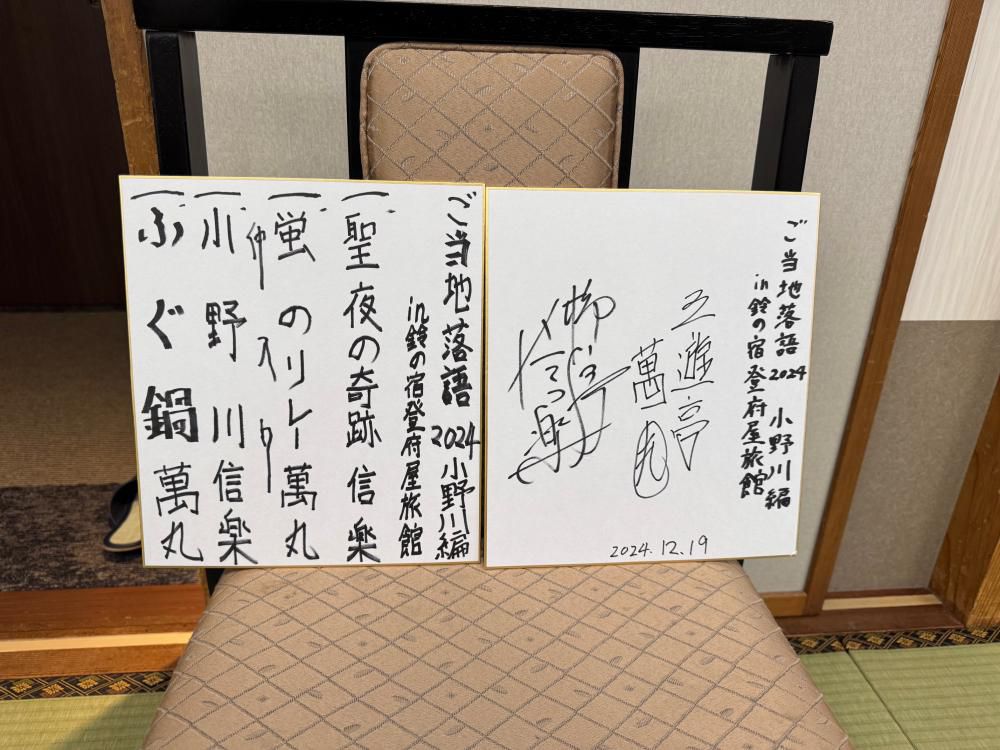 ご当地落語 2024 小野川編
in鈴の宿登府屋旅館
一聖夜の奇跡 信楽
一蛍のリレー 萬丸
仲入り
一小野川 信楽
一ふぐ鍋 萬丸
ご当地落語 2024 小野川編
in鈴の宿登府屋旅館
三遊亭
萬丸
2024.12.19